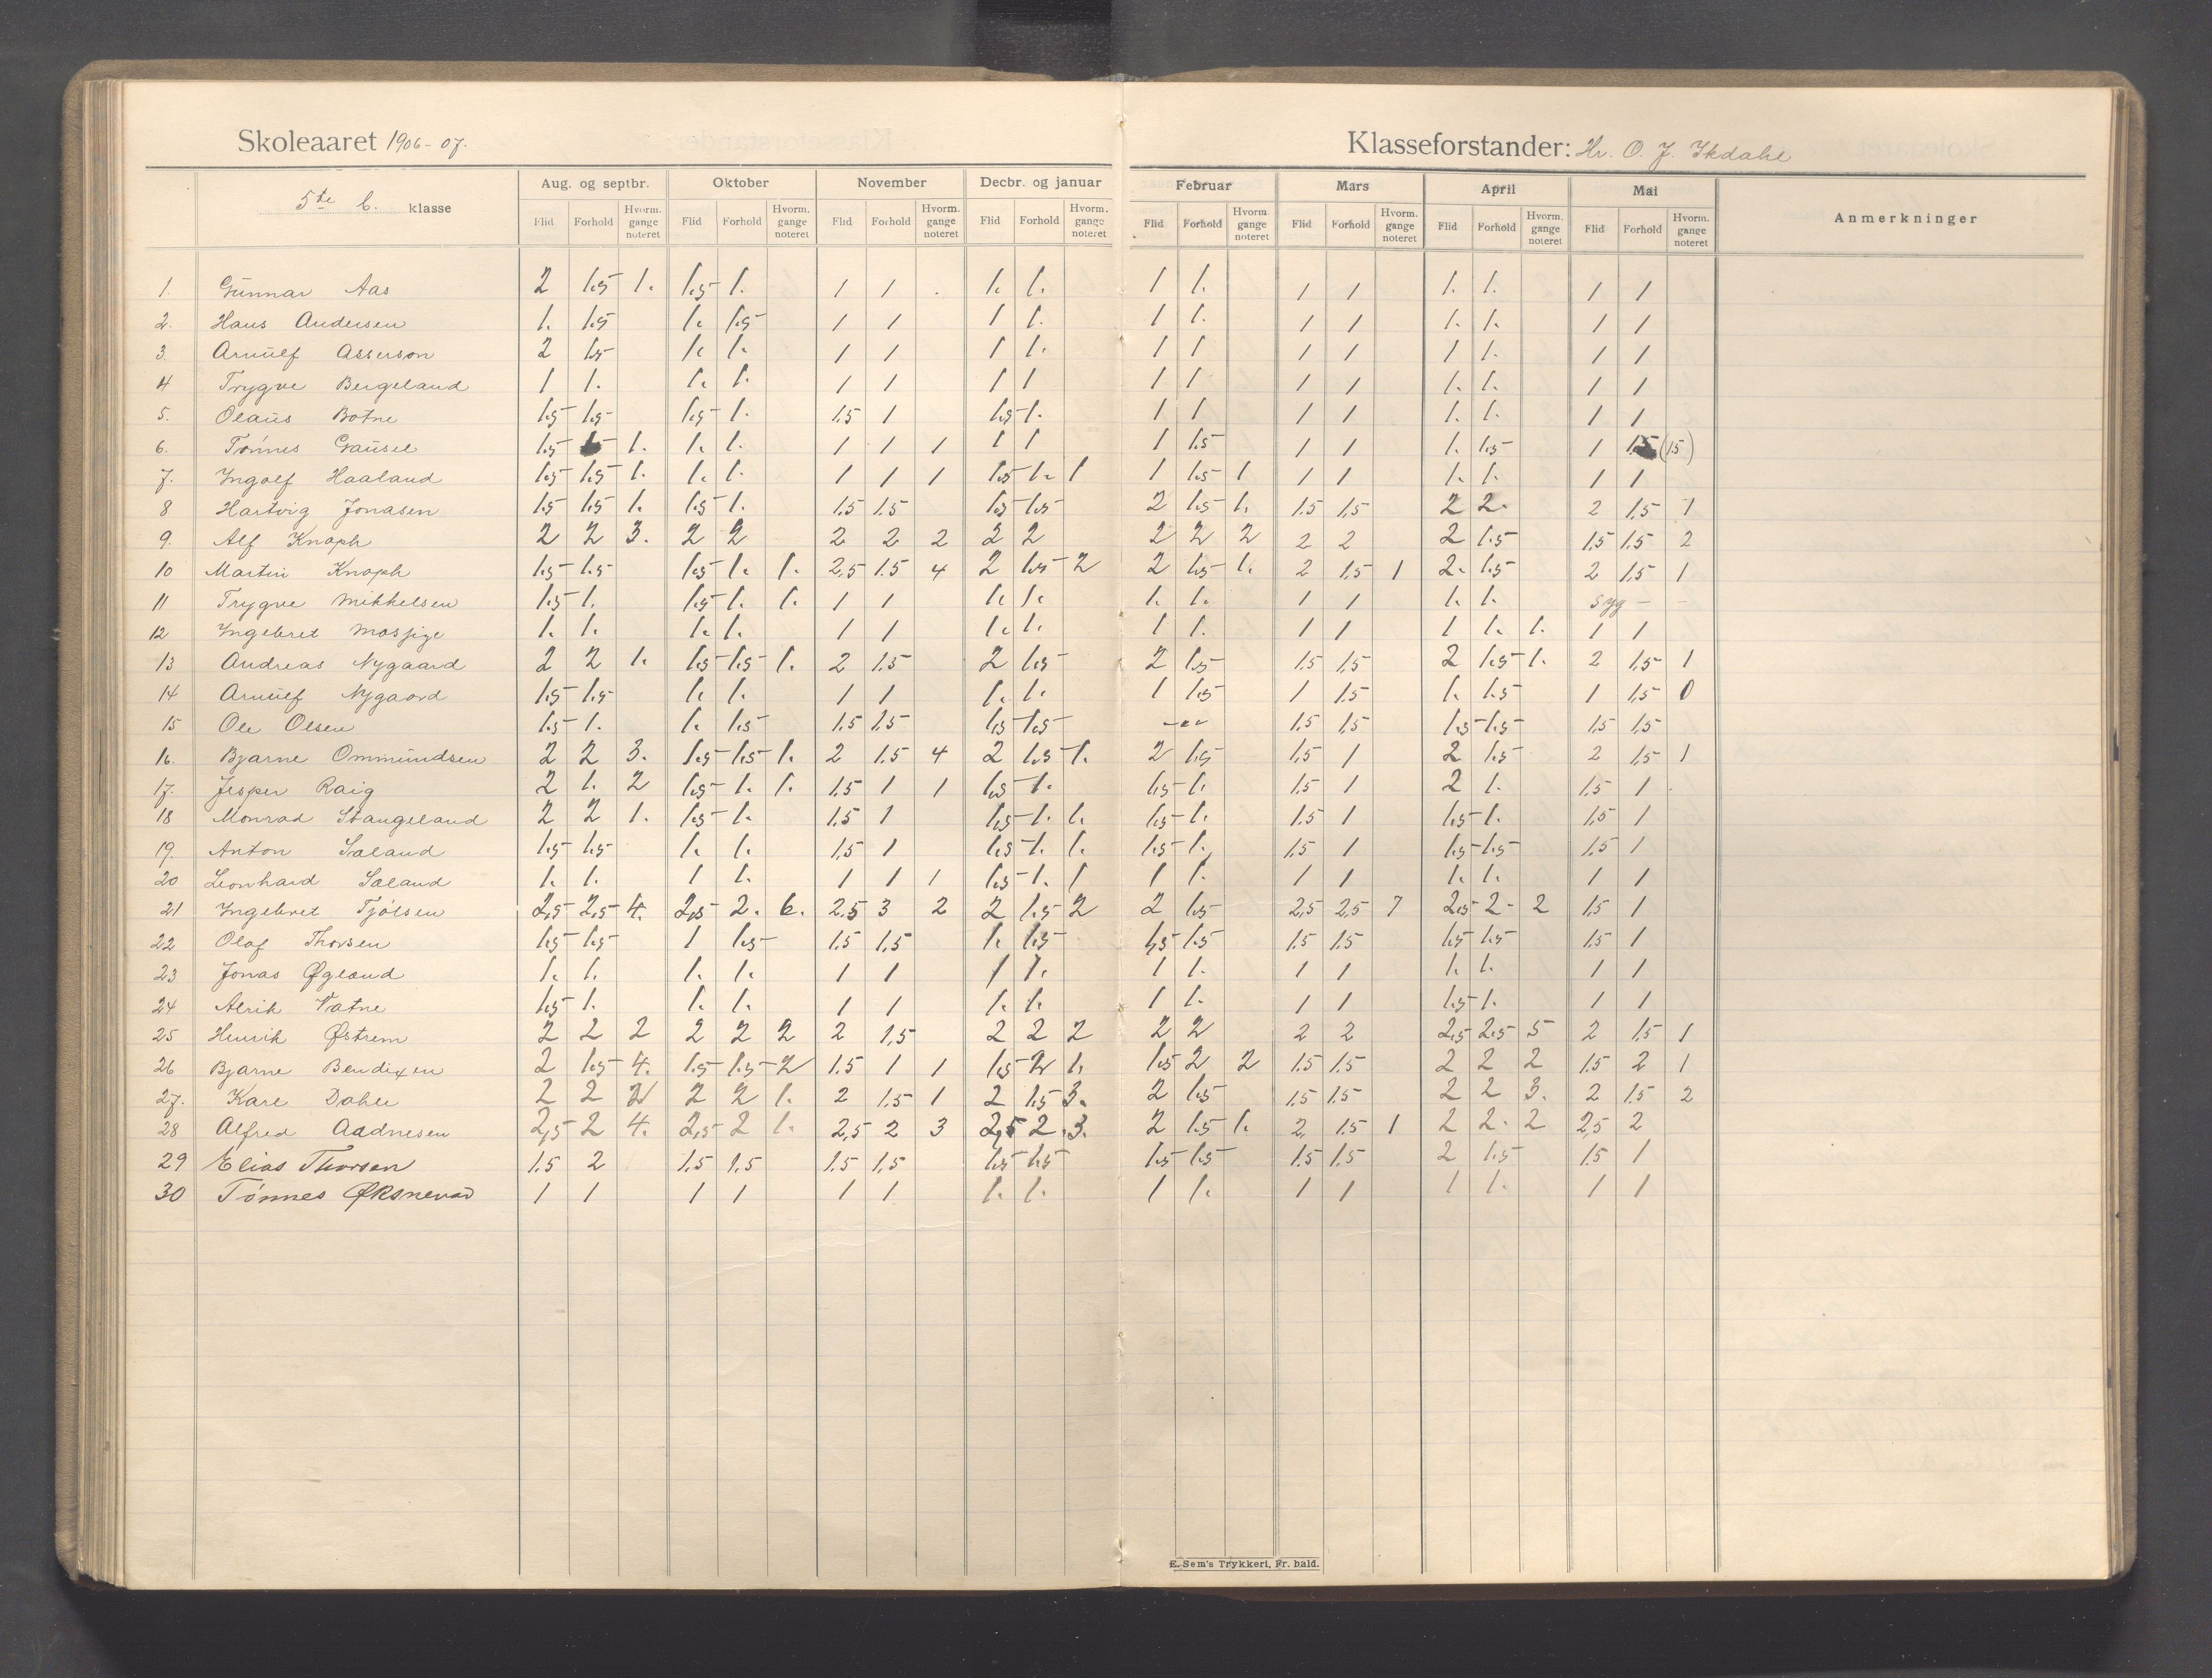 Skoleaaret 1906-07.
Klasseforstander: Hr. O. J.
5te b. klasse
Aug. og septbr. Oktober November Decbr. og januar Februar Mars April Mai Anmerkninger
Flid Forhold Hvorm. gange noteret Flid Forhold Hvorm. gange noteret Flid Forhold Hvorm. gange noteret Flid Forhold Hvorm. gange noteret Flid Forhold Hvorm. gange noteret Flid Forhold Hvorm. gange noteret Flid Forhold Hvorm. gange noteret Flid Forhold Hvorm. gange noteret
1. Gunnar Aas 2 1.5 1. 1.5 1. 1 1 . 1. 1. 1 1. 1 1 1. 1. 1 1
2. Hans Andersen 1. 1.5 1. 1.5 1 1 1 1. 1 1. 1 1 1. 1. 1 1
3. Arnulf Asserson 2 1.5 1. 1. 1 1 1 1. 1 1 1 1 1 1. 1 1
4 Trygve Bergeland 1 1. 1. 1. 1 1 1 1 1 1 1 1 1. 1. 1 1
5. Olaus Botne 1.5 1.5 1.5 1. 1.5 1 1.5 1. 1 1 1 1 1. 1. 1 1
6. Tønnes Gausel 1.5 1. 1. 1. 1 1 1 1 1 1 1.5 1 1 1. 1.5 1 1.5 (1.5)
7. Ingolf Haaland 1.5 1.5 1. 1. 1. 1 1 1 1.5 1. 1 1 1.5 1 1 1 1. 1. 1 1
8 Hartvig Jonasen 1.5 1.5 1. 1.5 1. 1.5 1.5 1.5 1.5 2 1.5 1. 1.5 1.5 2 2. 2 1.5 1
9. Alf Knoph 2 2 3. 2 2 2 2 2 2 2 2 2 2 2 2 2 1.5 1.5 1.5 2
10 Martin Knoph 1.5 1.5 1.5 1. 1. 2,5 1.5 4 2 1.5 2 2 1.5 1. 2 1,5 1 2. 1.5 2 1.5 1
11 Trygve Mikkelsen 1.5 1. 1.5 1. 1. 1 1 1. 1. 1. 1. 1 1 1. 1. syg — –
12 Ingebret Mosjige 1. 1. 1. 1. 1 1 1. 1. 1 1. 1 1 1 1. 1. 1 1
13 Andreas Nygaard 2 2 1. 1.5 1.5 1. 2 1.5 2 1.5 2 1.5 1.5 1,5 2 1.5 1. 2 1.5 1
14 Arnulf Nygaard 1.5 1.5 1. 1. 1 1 1. 1. 1 1.5 1 1.5 1. 1.5 1 1,5 0
15 Ole Olsen 1.5 1. 1. 1.5 1.5 1,5 1.5 1.5 1.5 1,5 1.5 1.5 1,5 1.5
16. Bjarne Ommundsen 2 2 3. 1.5 1.5 1. 2 1.5 4 2 1.5 1. 2 1.5 1.5 1 2 1.5 2 1.5 1
17. Jesper Raig 2 1. 2 1.5 1. 1. 1.5 1 1 1.5 1. 1.5 1. 1.5 1 2 1. 1.5 1
18 Monrad Stangeland 2 2 1. 1.5 1. 1.5 1 1.5 1. 1. 1.5 1. 1.5 1 1.5 1. 1,5 1
19. Anton Sæland 1.5 1.5 1. 1. 1,5 1 1.5 1. 1. 1.5 1. 1.5 1 1.5 1.5 1.5 1
20 Leonhard Sæland 1. 1. 1 1. 1 1 1 1.5 1. 1 1 1. 1 1 1. 1. 1 1
21 Ingebret Tjølsen 2,5 2,5 4. 2,5 2. 6. 2.5 3 2 2 1.5 2 2 1.5 2,5 2,5 7 2.5 2 2 1,5 1
22 Olaf Thorsen 1.5 1.5 1 1.5 1.5 1,5 1. 1.5 1.5 1.5 1.5 1.5 1.5 1.5 1.5 1
23 Jonas Øglænd 1. 1. 1. 1. 1 1 1 1. 1 1. 1 1 1. 1. 1 1
24 Alrik Vatne 1.5 1. 1. 1. 1 1 1. 1. 1 1. 1 1 1.5 1. 1 1
25 Henrik Østrem 2 2 2 2 2 2 2 1,5 2 2 2 2 2 2 2 2,5 2.5 5 2 1.5 1
26 Bjarne Bendixen 2 1.5 4. 1.5 1.5 2 1.5 1 1 1.5 2 1. 1.5 2 2 1.5 1.5 2 2 2 1.5 2 1
27. Kare Dahle 2 2 2 2 2 1. 2 1.5 1 2 1.5 3. 2 1.5 1.5 1.5 2 2 3. 2 1.5 2
28 Alfred Aadnesen 2,5 2 4. 2,5 2 1. 2,5 2 3 2,5 2 3. 2 1.5 1. 2, 1.5 1 2 2. 2 2,5 2
29 Elias Thorsen 1.5 2 1.5 1,5 1.5 1,5 1.5 1.5 1.5 1.5 1.5 1.5 2 1.5 1.5 1
30 Tønnes Øksnevad 1 1 1 1 1 1 1. 1. 1 1. 1 1 1 1. 1 1
E. Sem's Trykkeri, Fr. hald.